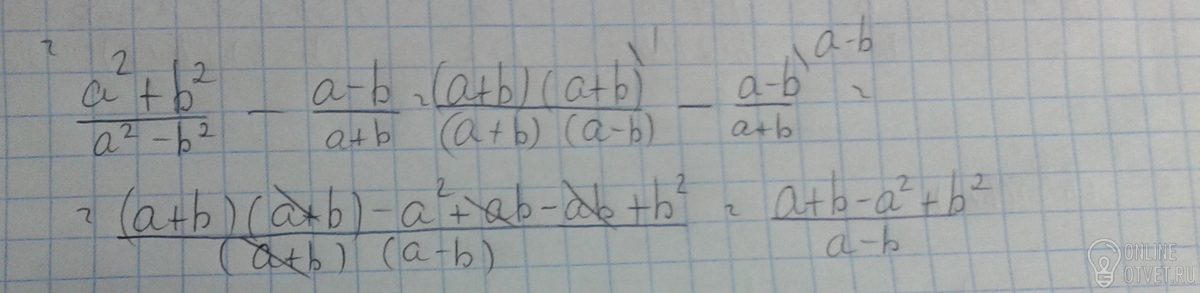 ² (a²+b²)/(a²-b²) - (a-b)/(a+b) = ((a+b)(a+b)\¹)/((a+b)(a-b)) - (a-b\a-b)/(a+b) =
= ((a+b)(a+b)-a²+ab-ab+b²)/((a+b)(a-b)) = (a+b-a²+b²)/(a-b)
ONLINE
OTVET.RU